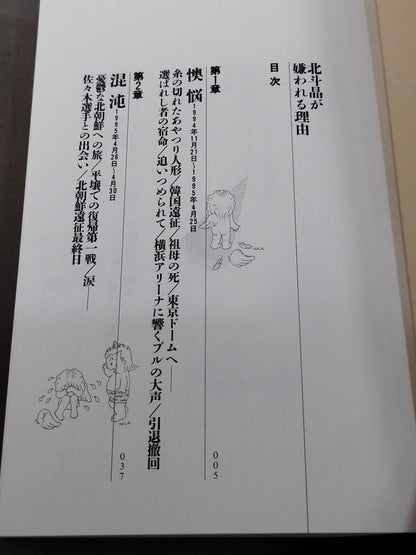 北斗晶が
嫌われる理由
目次
第1章
懊悩 ―1994年11月21日〜1995年4月25日
糸の切れたあやつり人形／韓国遠征／祖母の死／東京ドームへ――
選ばれし者の宿命／追いつめられて／横浜アリーナに響くブルの大声／引退撤回
005
第2章
混沌 ―1995年4月26日〜4月30日
憂鬱な北朝鮮への旅／平壌での復帰第一戦／涙――
佐々木選手との出会い／北朝鮮遠征最終日
037